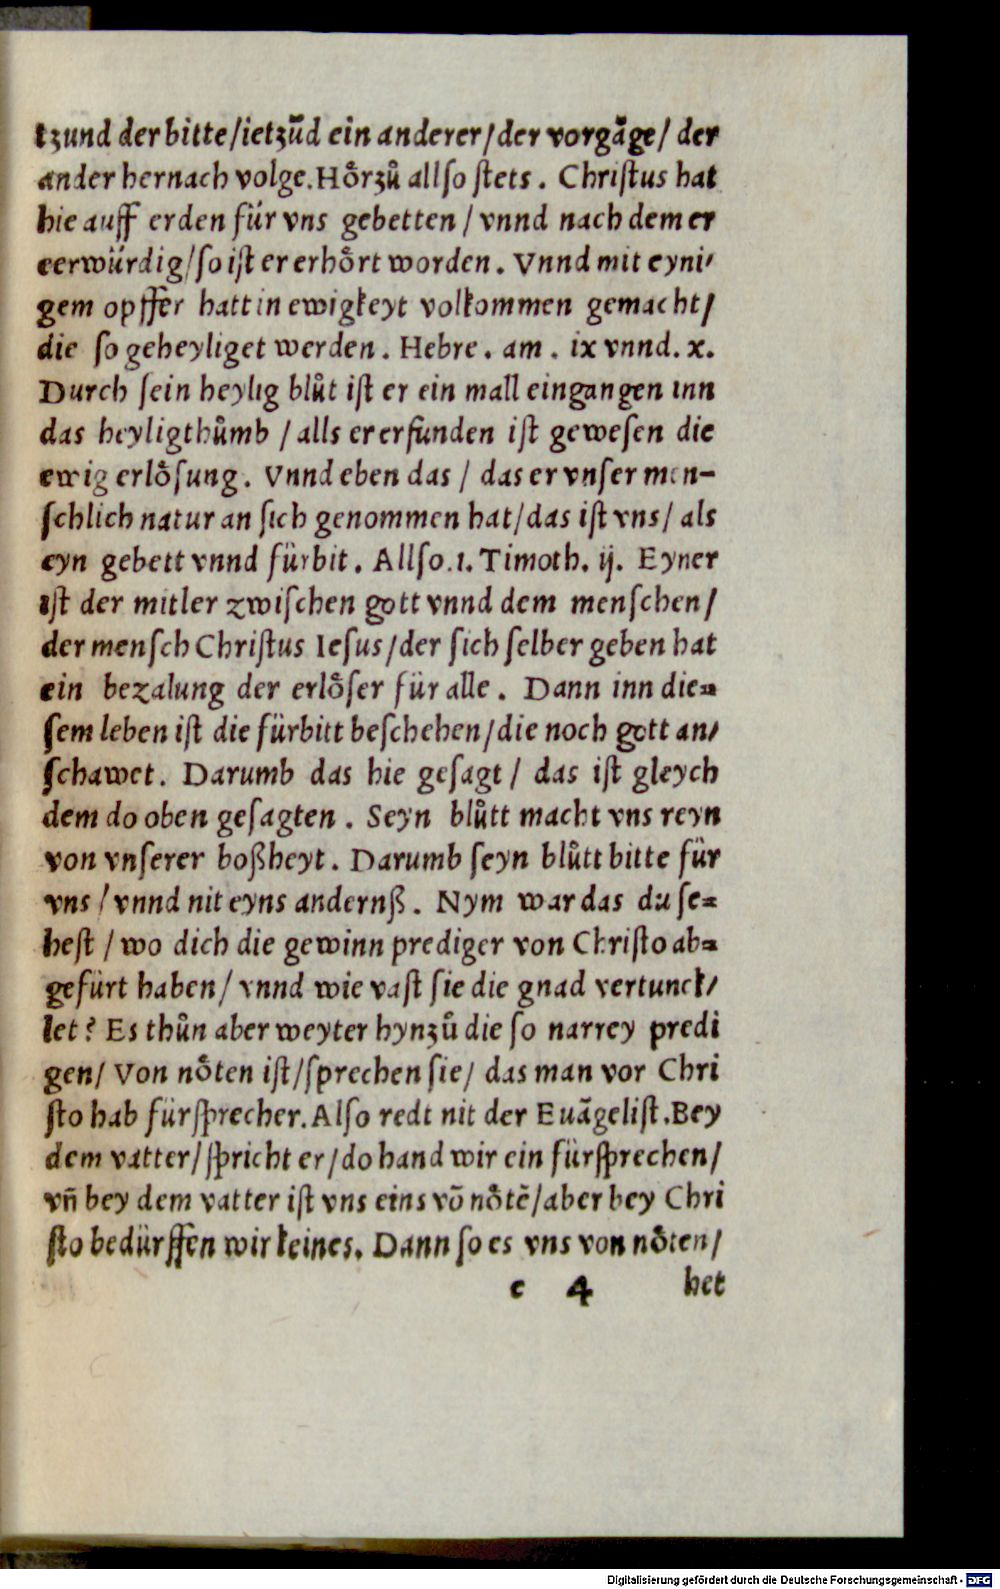 tzund der bitte/ietzūd ein anderer/der vorgāge/ der
ander hernach volge.Hoͤrzuͦ allſo ſtets. Chriſtus hat
hie auff erden für vns gebetten / vnnd nach dem er
eerwürdig/ſo iſt er erhoͤrt worden. Vnnd mit eyni⸗
gem opffer hatt in ewigkeyt volkommen gemacht/
die ſo geheyliget werden. Hebre. am. ix vnnd. x.
Durch ſein heylig bluͦt iſt er ein mall eingangen inn
das heyligthuͦmb / alls er erfunden iſt geweſen die
ewig erloͤſung. Vnnd eben das / das er vnſer men-
ſchlich natur an ſich genommen hat/das iſt vns/ als
eyn gebett vnnd fürbit. Allſo.1. Timoth. ij. Eyner
iſt der mitler zwiſchen gott vnnd dem menſchen/
der menſch Chriſtus Ieſus/der ſich ſelber geben hat
ein bezalung der erloͤſer für alle. Dann inn die⸗
ſem leben iſt die fürbitt beſchehen/die noch gott an⸗
ſchawet. Darumb das hie geſagt / das iſt gleych
dem do oben geſagten. Seyn bluͦtt macht vns reyn
von vnſerer boßheyt. Darumb ſeyn bluͦtt bitte für
vns / vnnd nit eyns andernß. Nym war das du ſe⸗
heſt / wo dich die gewinn prediger von Chriſto ab⸗
gefürt haben/ vnnd wie vaſt ſie die gnad vertunck⸗
let? Es thuͦn aber weyter hynzuͦ die ſo narrey predi
gen/ Von noͤten iſt/ſprechen ſie/ das man vor Chri
ſto hab fürſprecher.Alſo redt nit der Euāgeliſt.Bey
dem vatter/ſpricht er/do hand wir ein fürſprechen/
vn̄ bey dem vatter iſt vns eins vō noͤtē/aber bey Chri
ſto bedürffen wir keines. Dann ſo es vns von noͤten/
c 4 het
Digitalisierung gefördert durch die Deutsche Forschungsgemeinschaft - DFG